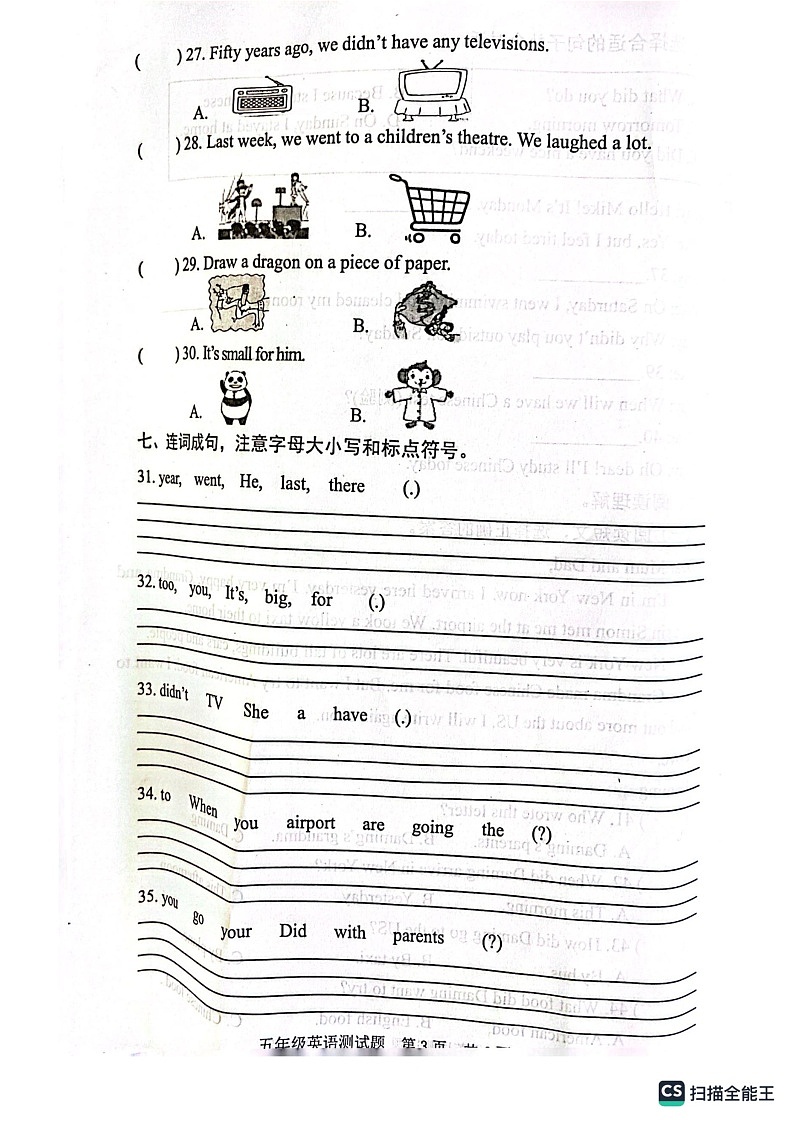 (    ) 27. Fifty years ago, we didn't have any televisions.
A.    B.
(    ) 28. Last week, we went to a children's theatre. We laughed a lot.
A.    B.
(    ) 29. Draw a dragon on a piece of paper.
A.    B.
(    ) 30. It's small for him.
A.    B.
七、连词成句，注意字母大小写和标点符号。
31. year, went, He, last, there (.)
32. too, you, It's, big, for (.)
33. didn't TV She a have (.)
34. to When you airport are going the (?)
35. you go your Did with parents (?)
五年级英语测试题 第3页
CS 扫描全能王